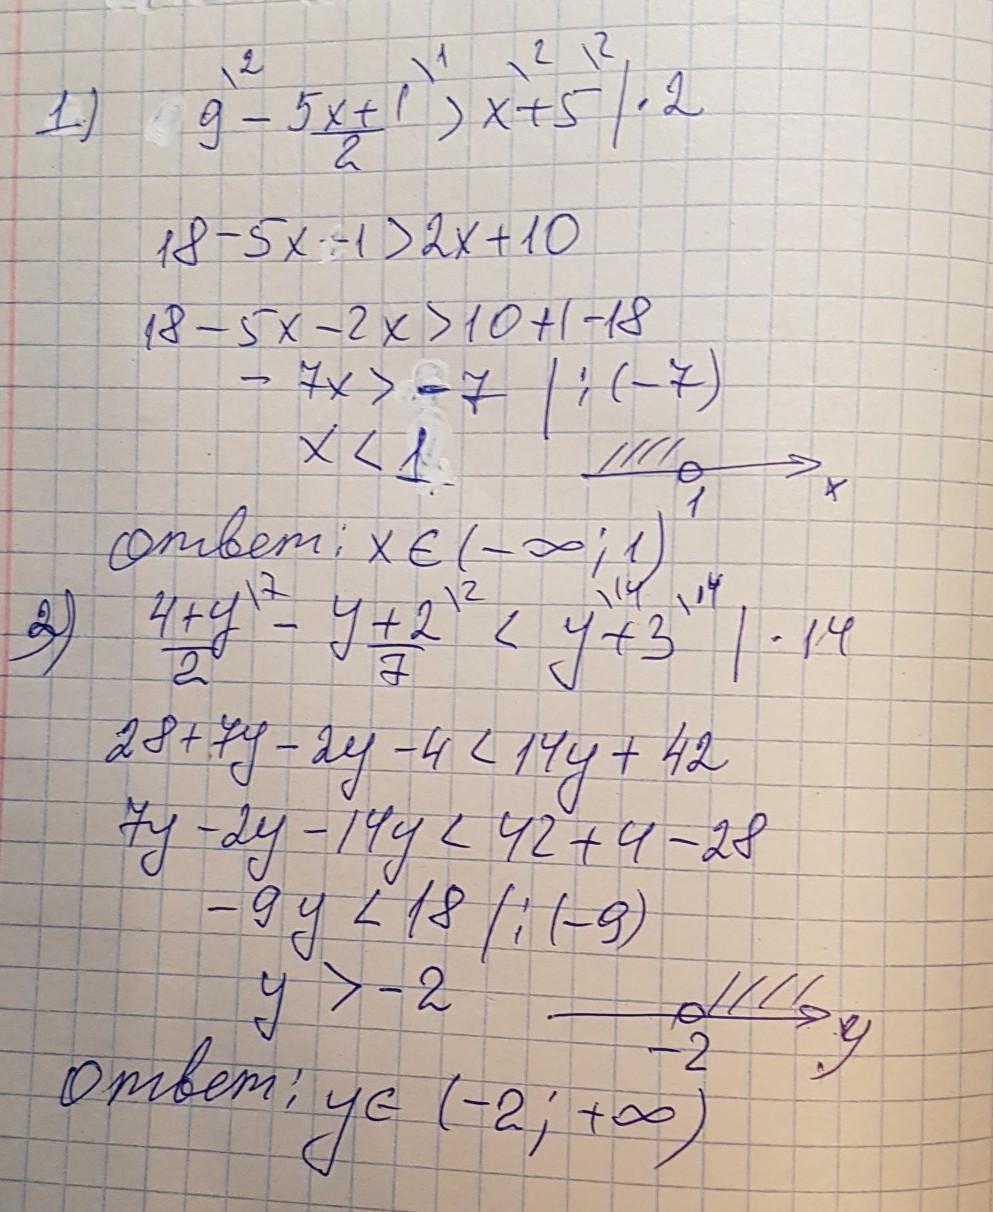 1.) 9\2 - (5x+1)/2\1 > x\2 + 5\2 | · 2
18-5x-1>2x+10
18-5x-2x>10+1-18
-7x>-7 | : (-7)
x<1
x
1
Ответ: x∈(-∞; 1)
2) (4+y)/2\7 - (y+2)/7\2 < y\14 + 3\14 | · 14
28+7y-2y-4<14y+42
7y-2y-14y<42+4-28
-9y<18 | : (-9)
y>-2
-2
y
Ответ: y∈(-2; +∞)